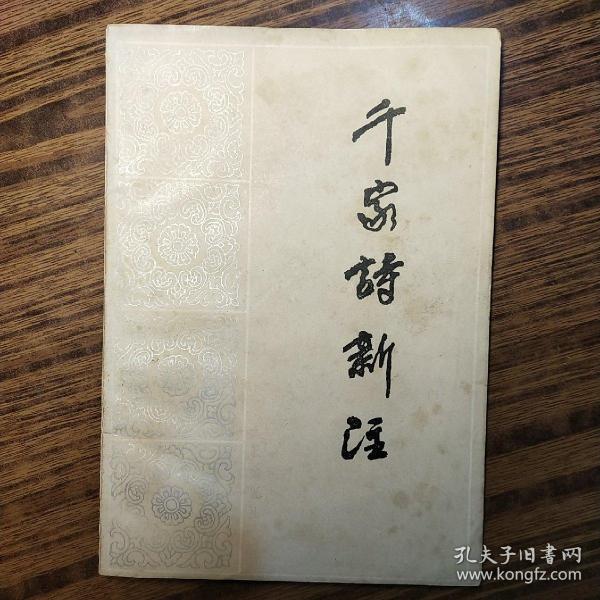 千家詩新注
孔夫子旧書网
www.kongfz.com